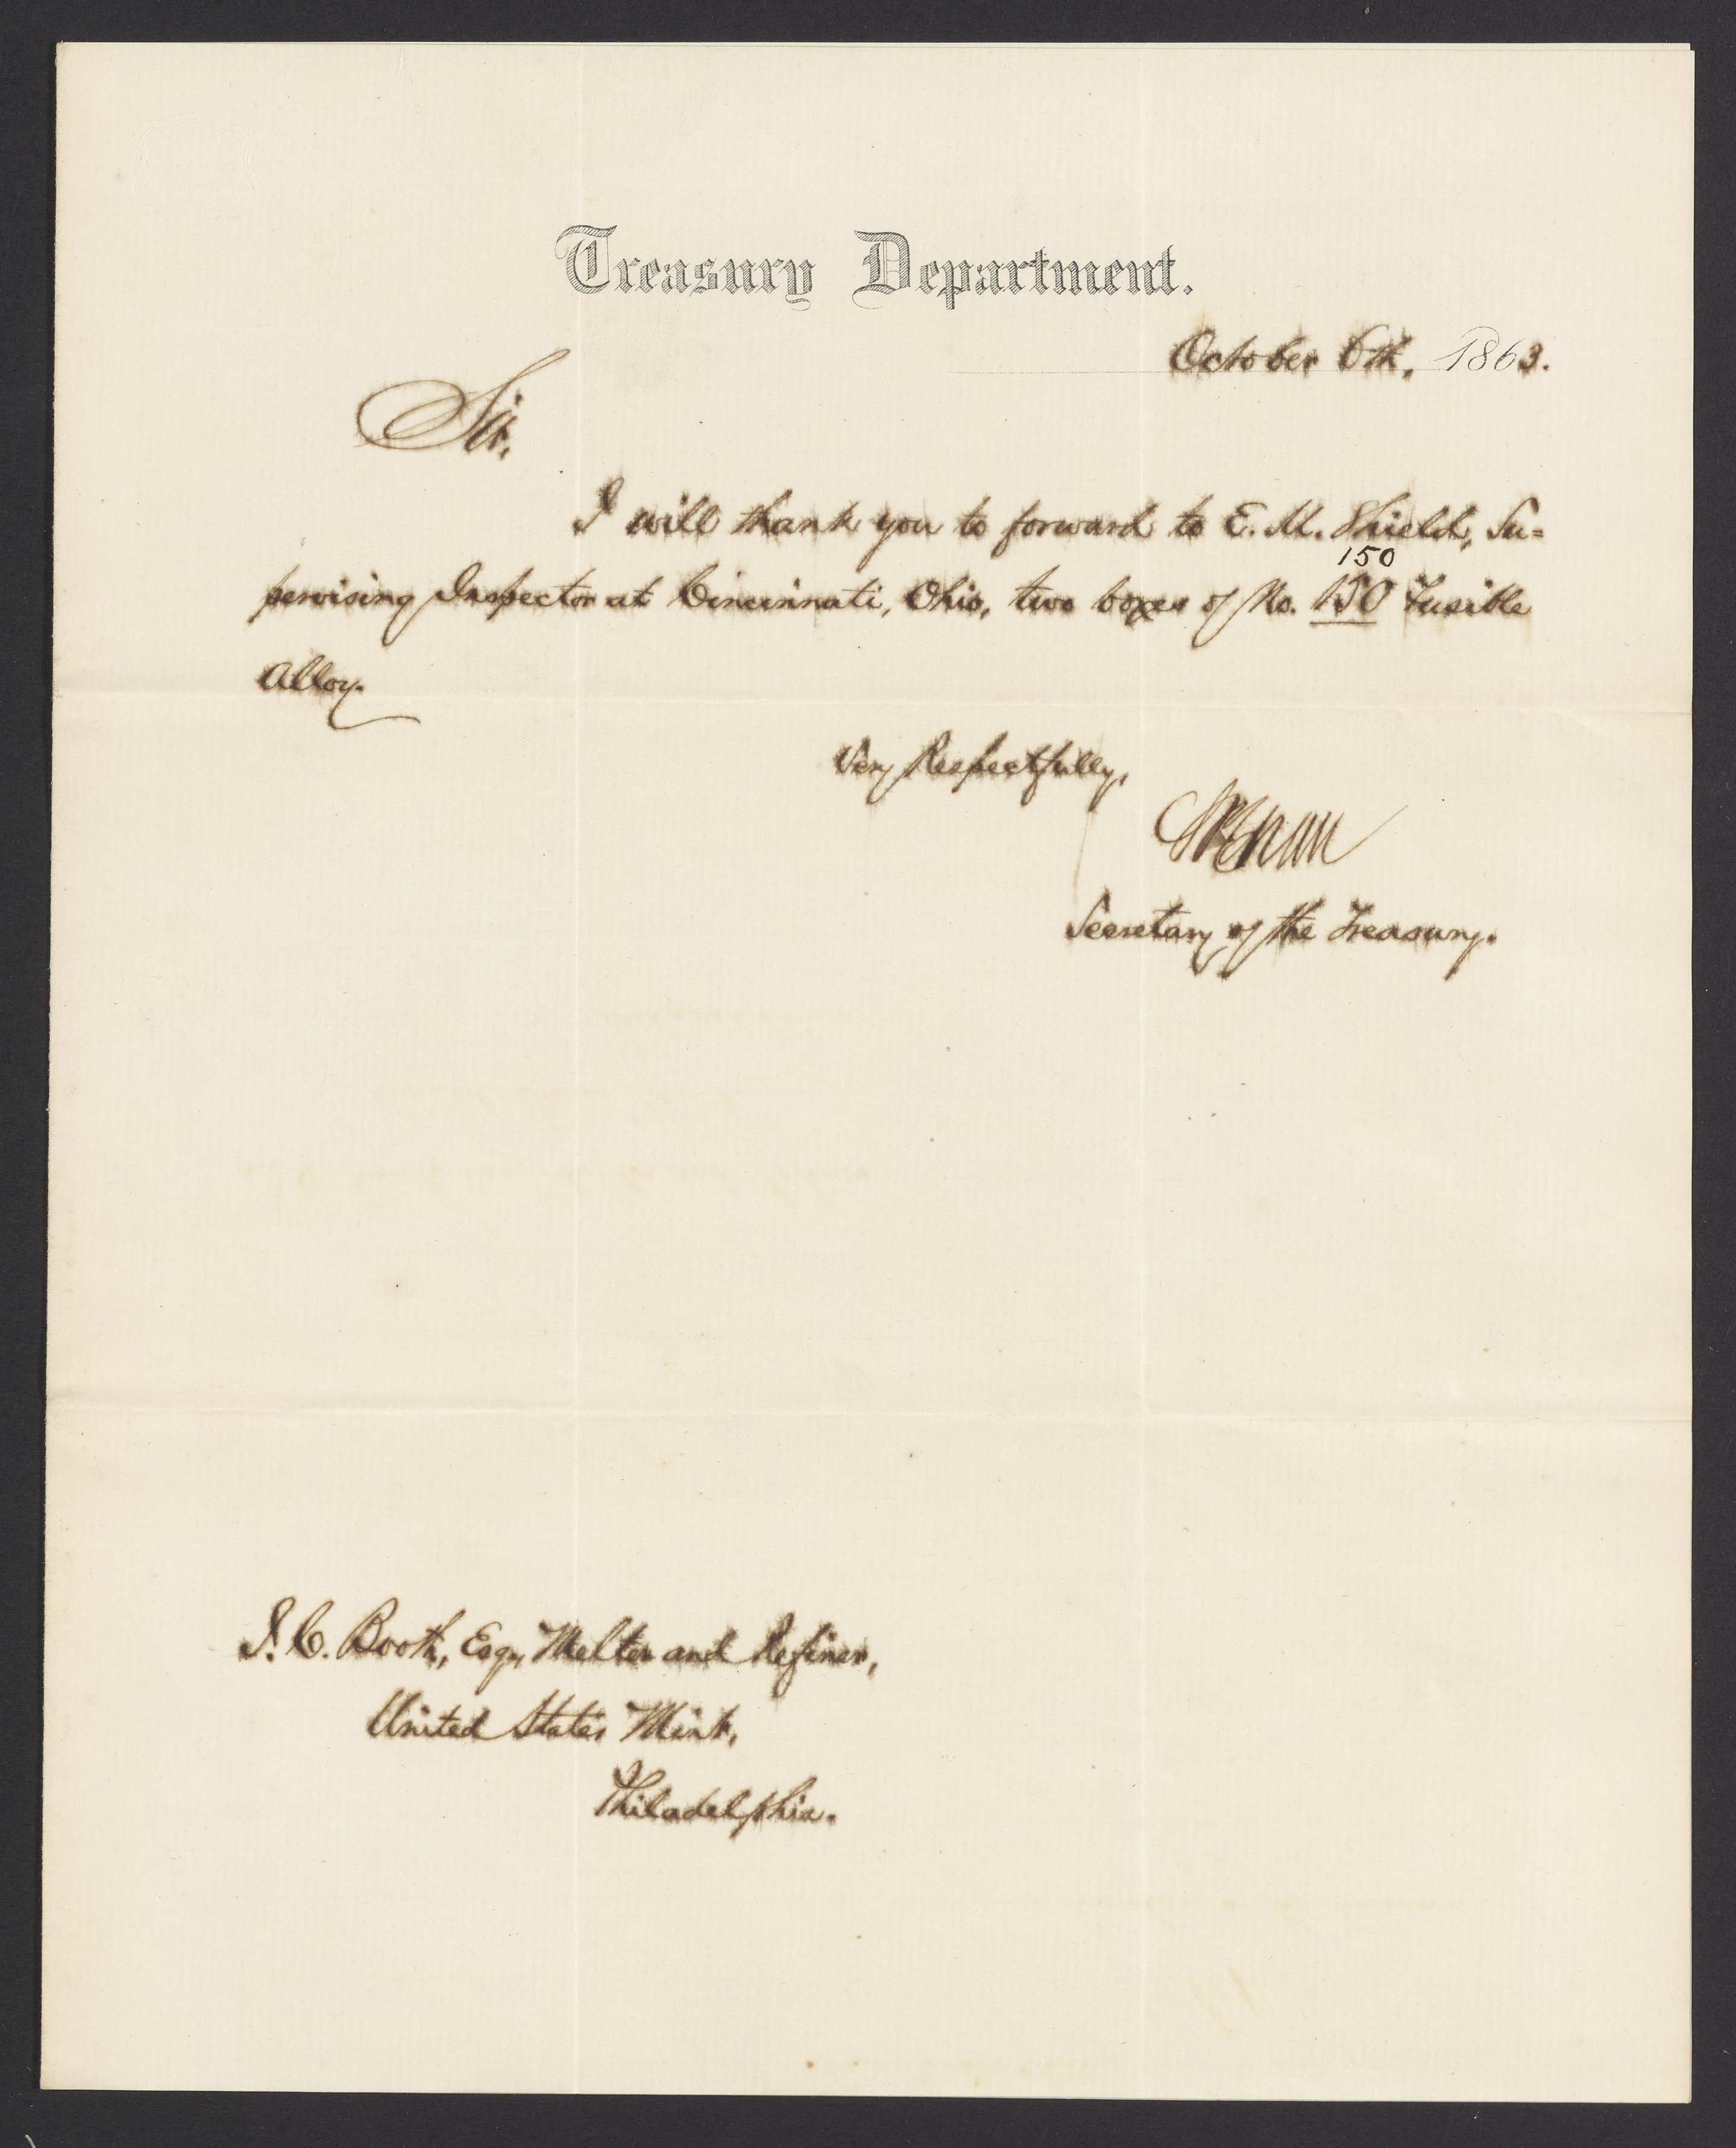 Treasury Department.
October 6th, 1863.
Sir,
I will thank you to forward to E. M. Shield, Su=
150
pervising Inspector at Cincinnati, Ohio, two boxes of No. 150 Fusible
Alloy.
Very Respectfully,
Secretary of the Treasury.
J. C. Booth, Esq., Melter and Refiner,
United States Mint,
Philadelphia.